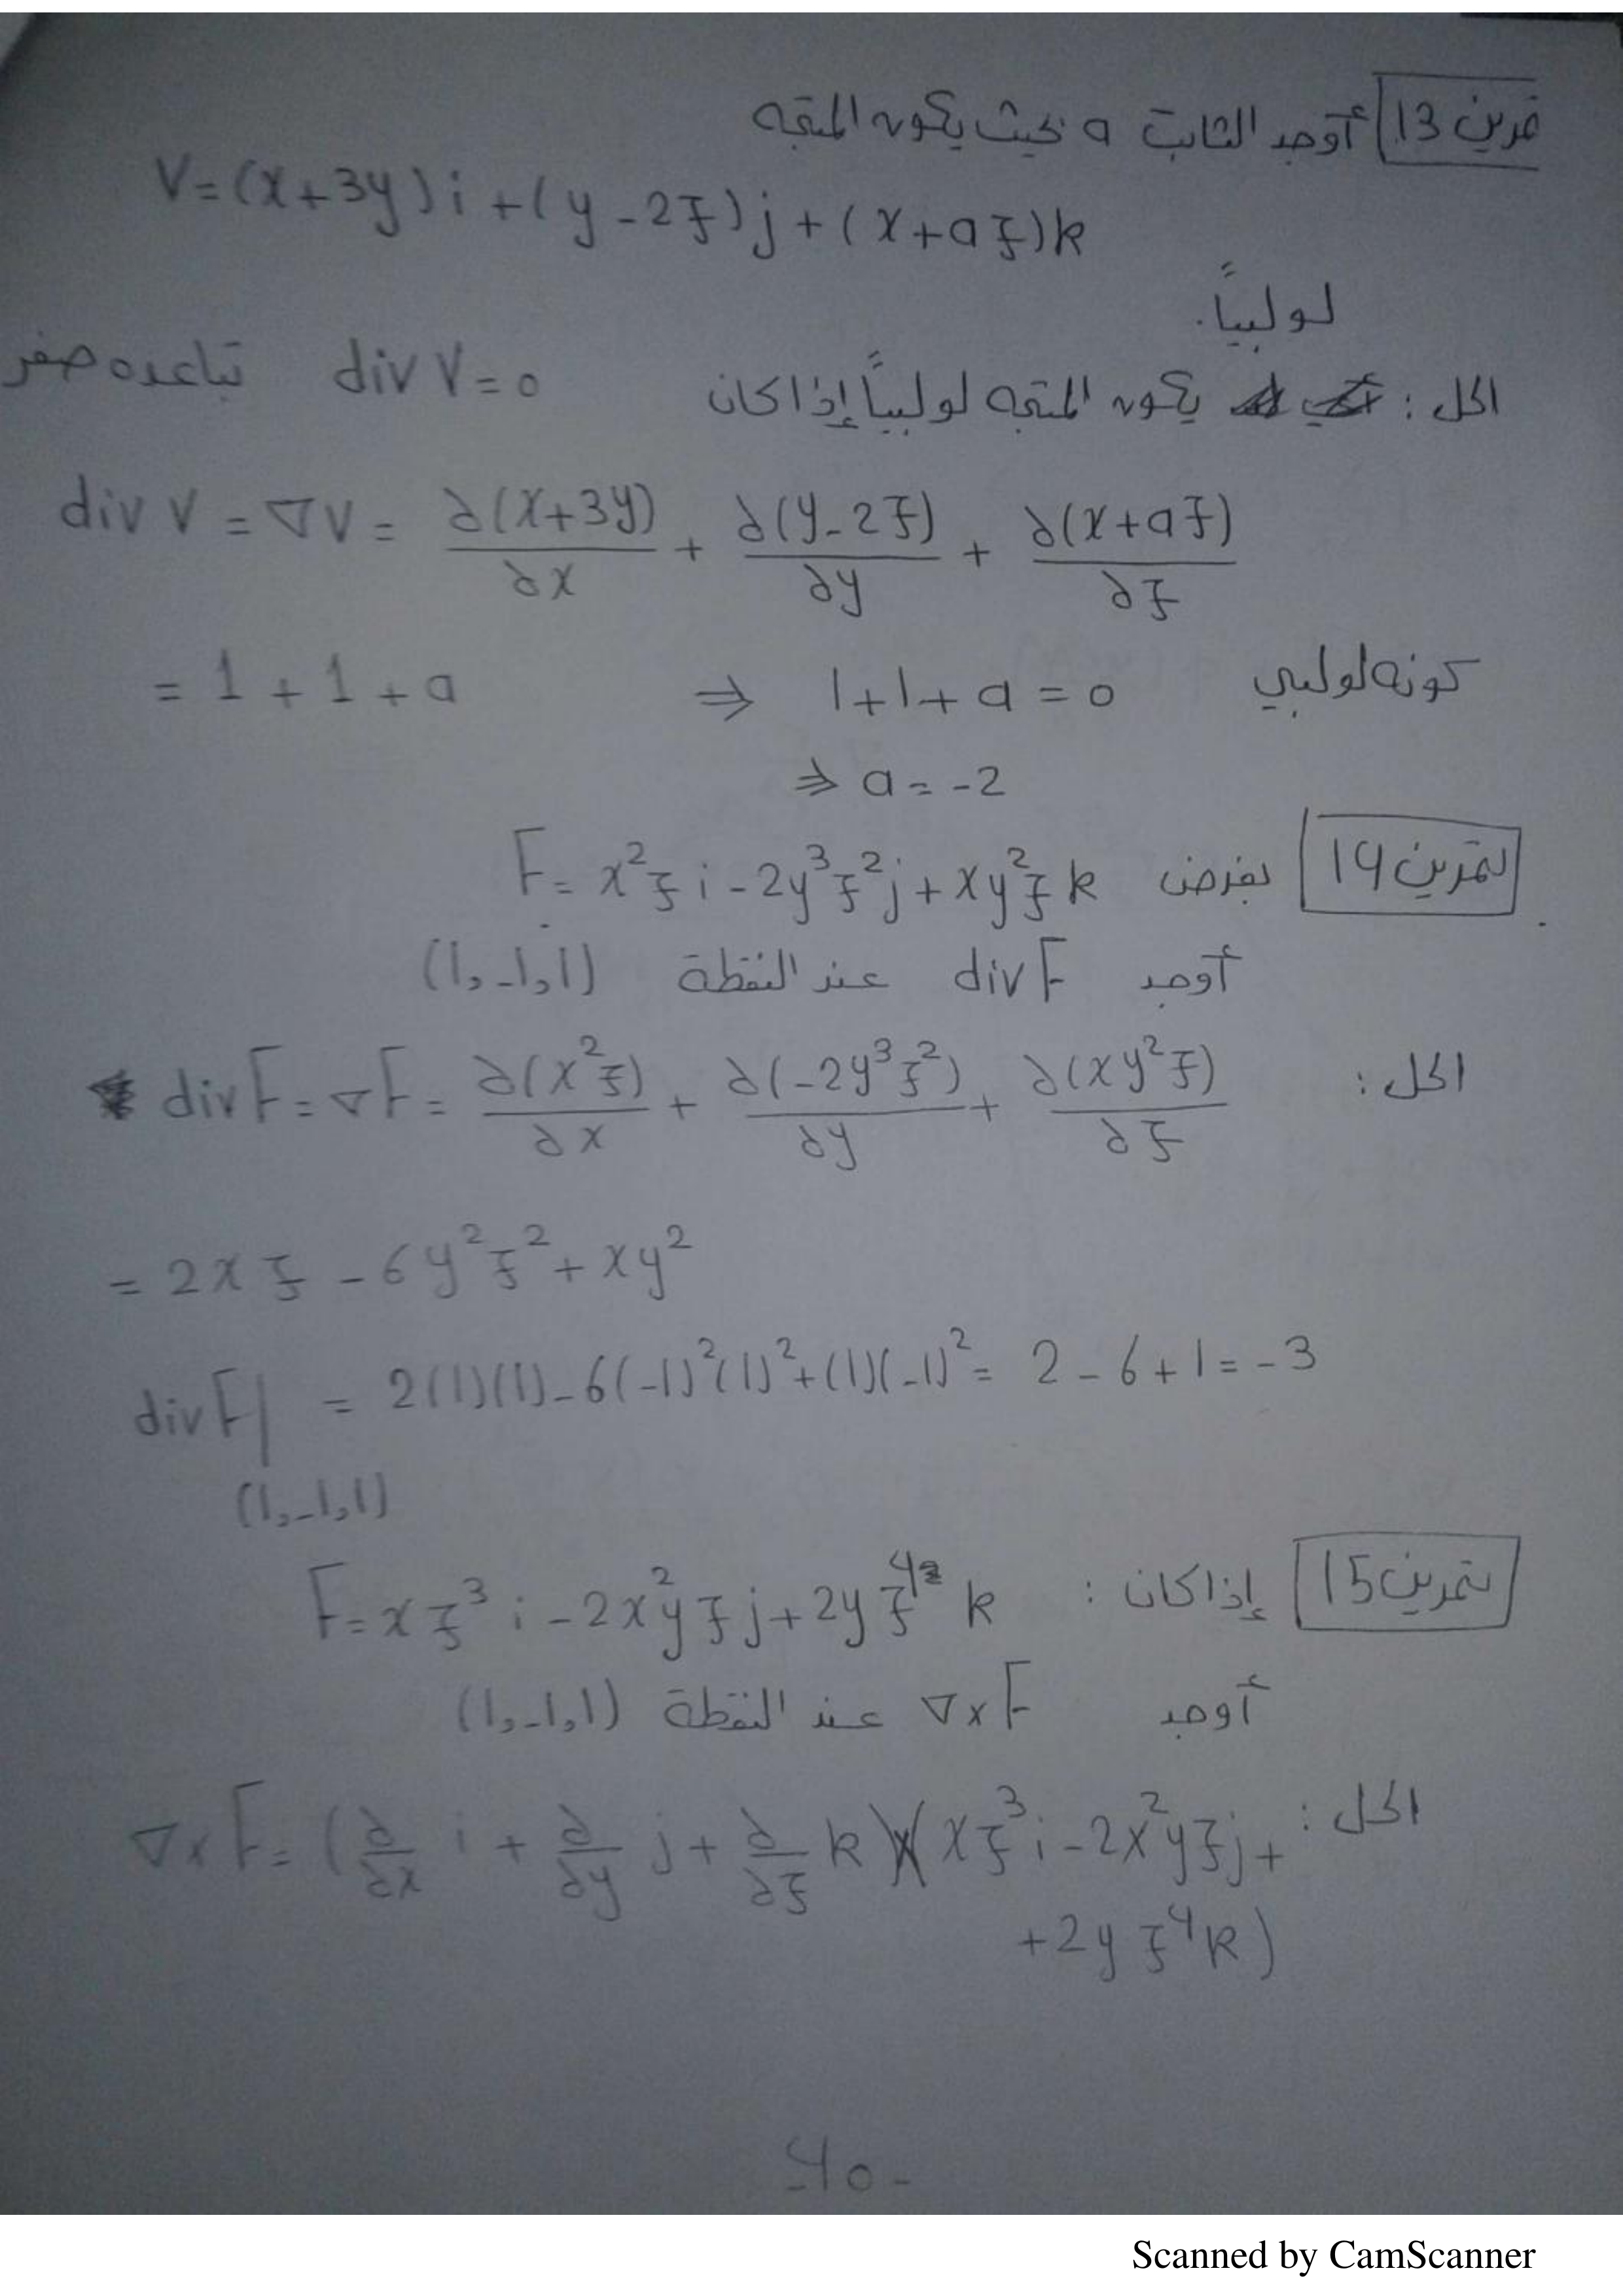 تمرين 13 أوجد الثابت a بحيث يكون المتجه
V=(x+3y)i+(y-2z)j+(x+az)k
لولبياً.
الحل: يكون المتجه لولبياً إذا كان div V=0 تباعده صفر
div V = ∇V = ∂(x+3y)/∂x + ∂(y-2z)/∂y + ∂(x+az)/∂z
= 1+1+a ⇒ 1+1+a=0 كونه لولبي
⇒ a=-2
تمرين 14 بفرض F= x²z i -2y³z²j+xy²z k
أوجد div F عند النقطة (1,-1,1)
الحل: div F=∇F= ∂(x²z)/∂x + ∂(-2y³z²)/∂y + ∂(xy²z)/∂z
= 2xz -6y²z²+xy²
div F| = 2(1)(1)-6(-1)²(1)²+(1)(-1)²= 2-6+1=-3
(1,-1,1)
تمرين 15 إذا كان: F=xz³ i -2x²yz j+2yz⁴ k
أوجد ∇xF عند النقطة (1,-1,1)
الحل: ∇xF= (∂/∂x i + ∂/∂y j+ ∂/∂z k)x(xz³i-2x²yzj+
+2yz⁴k)
-40-
Scanned by CamScanner